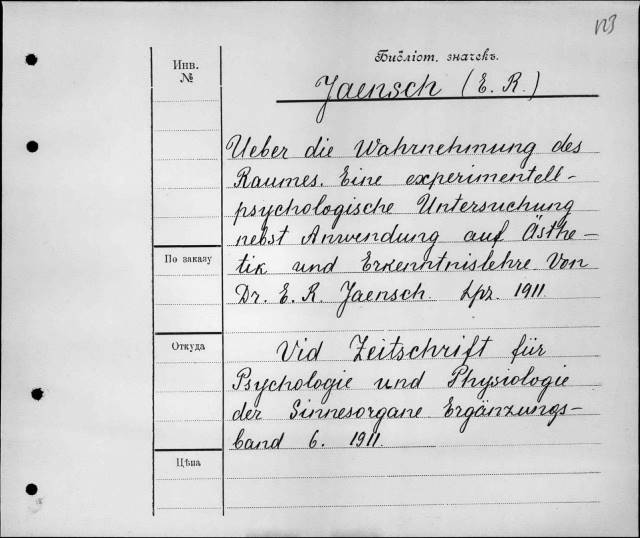 Библіот. значекъ.
Инв.
№
Jaensch (E. R.)
Ueber die Wahrnehmung des
Raumes. Eine experimentell-
psychologische Untersuchung
nebst Anwendung auf Ästhe-
tik und Erkenntnislehre. Von
Dr. E. R. Jaensch. Lpz. 1911.
По заказу
Откуда
Vid Zeitschrift für
Psychologie und Physiologie
der Sinnesorgane Ergänzungs-
band 6. 1911.
Цѣна